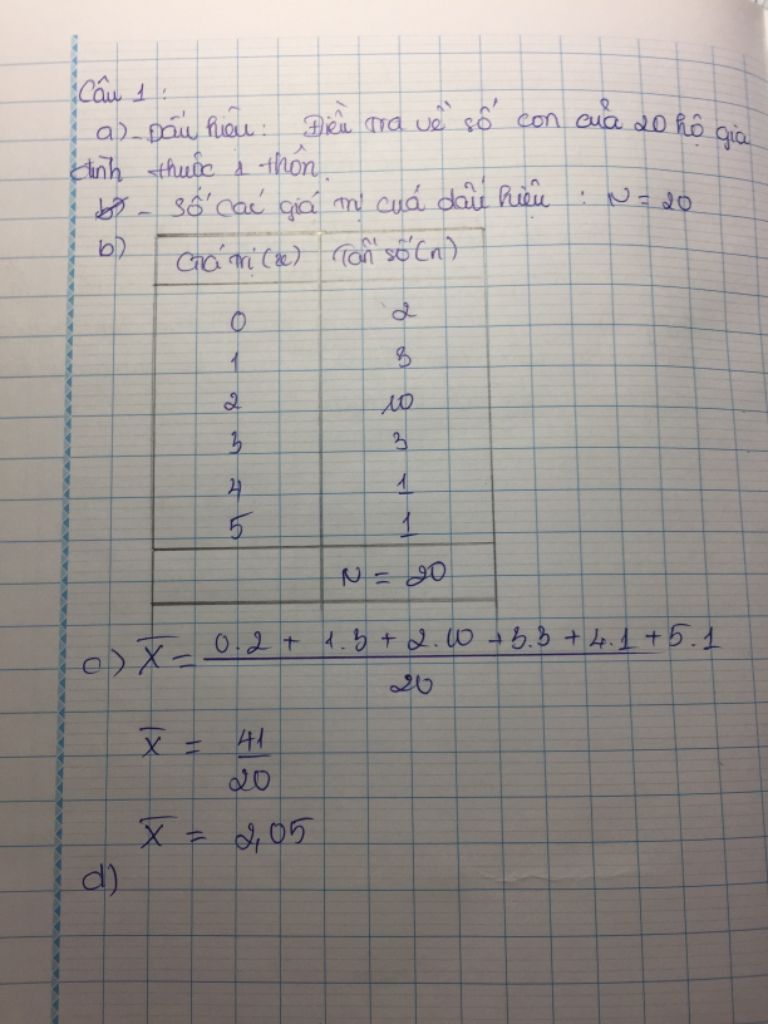 Câu 1 :
a) - Dấu hiệu : Điều tra về số con của 20 hộ gia
đình thuộc 1 thôn.
b) - Số các giá trị của dấu hiệu : N = 20
b)
Giá trị (x) Tần số (n)
0 2
1 3
2 10
3 3
4 1
5 1
N = 20
c) X̄ = (0.2 + 1.3 + 2.10 + 3.3 + 4.1 + 5.1)
20
X̄ = 41
20
X̄ = 2,05
d)